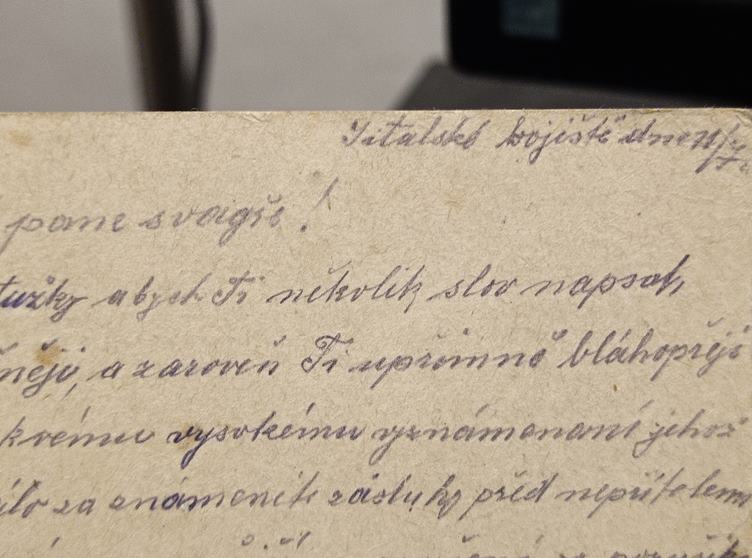 Italské bojiště dne
pane svagře!
tužky abych Ti několik slov napsal,
něji, a zaroveň Ti upřimně bláhopřeji
vysokému vyznámenaní jehož
za známenite zásluhy před nepřitelem